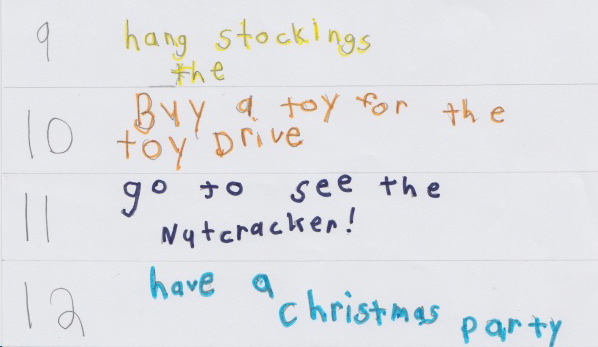 9 hang stockings
the
10 Buy a toy for the
toy Drive
11 go to see the
Nutcracker!
12 have a
christmas party